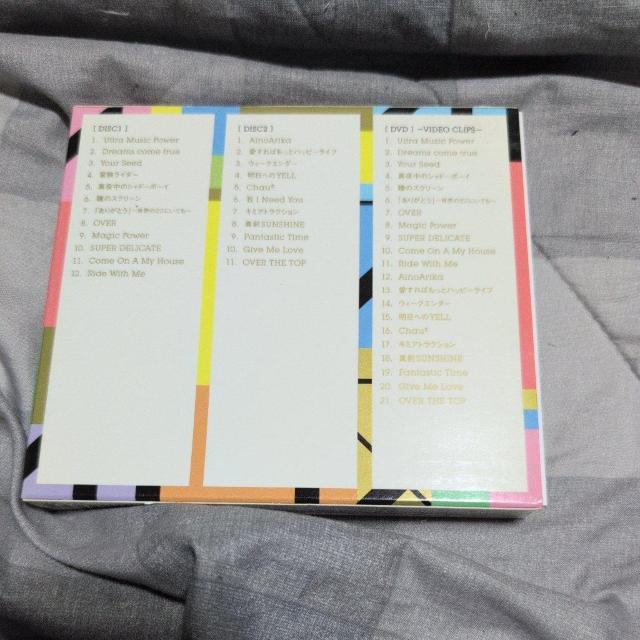 [ DISC1 ]
1. Ultra Music Power
2. Dreams come true
3. Your Seed
4. 冒険ライダー
5. 真夜中のシャドーボーイ
6. 瞳のスクリーン
7. 「ありがとう」~世界のどこにいても~
8. OVER
9. Magic Power
10. SUPER DELICATE
11. Come On A My House
12. Ride With Me
[ DISC2 ]
1. AinoArika
2. 愛すればもっとハッピーライフ
3. ウィークエンダー
4. 明日へのYELL
5. Chau#
6. 我 I Need You
7. キミアトラクション
8. 真剣SUNSHINE
9. Fantastic Time
10. Give Me Love
11. OVER THE TOP
[ DVD ] -VIDEO CLIPS-
1. Ultra Music Power
2. Dreams come true
3. Your Seed
4. 真夜中のシャドーボーイ
5. 瞳のスクリーン
6. 「ありがとう」~世界のどこにいても~
7. OVER
8. Magic Power
9. SUPER DELICATE
10. Come On A My House
11. Ride With Me
12. AinoArika
13. 愛すればもっとハッピーライフ
14. ウィークエンダー
15. 明日へのYELL
16. Chau#
17. キミアトラクション
18. 真剣SUNSHINE
19. Fantastic Time
20. Give Me Love
21. OVER THE TOP